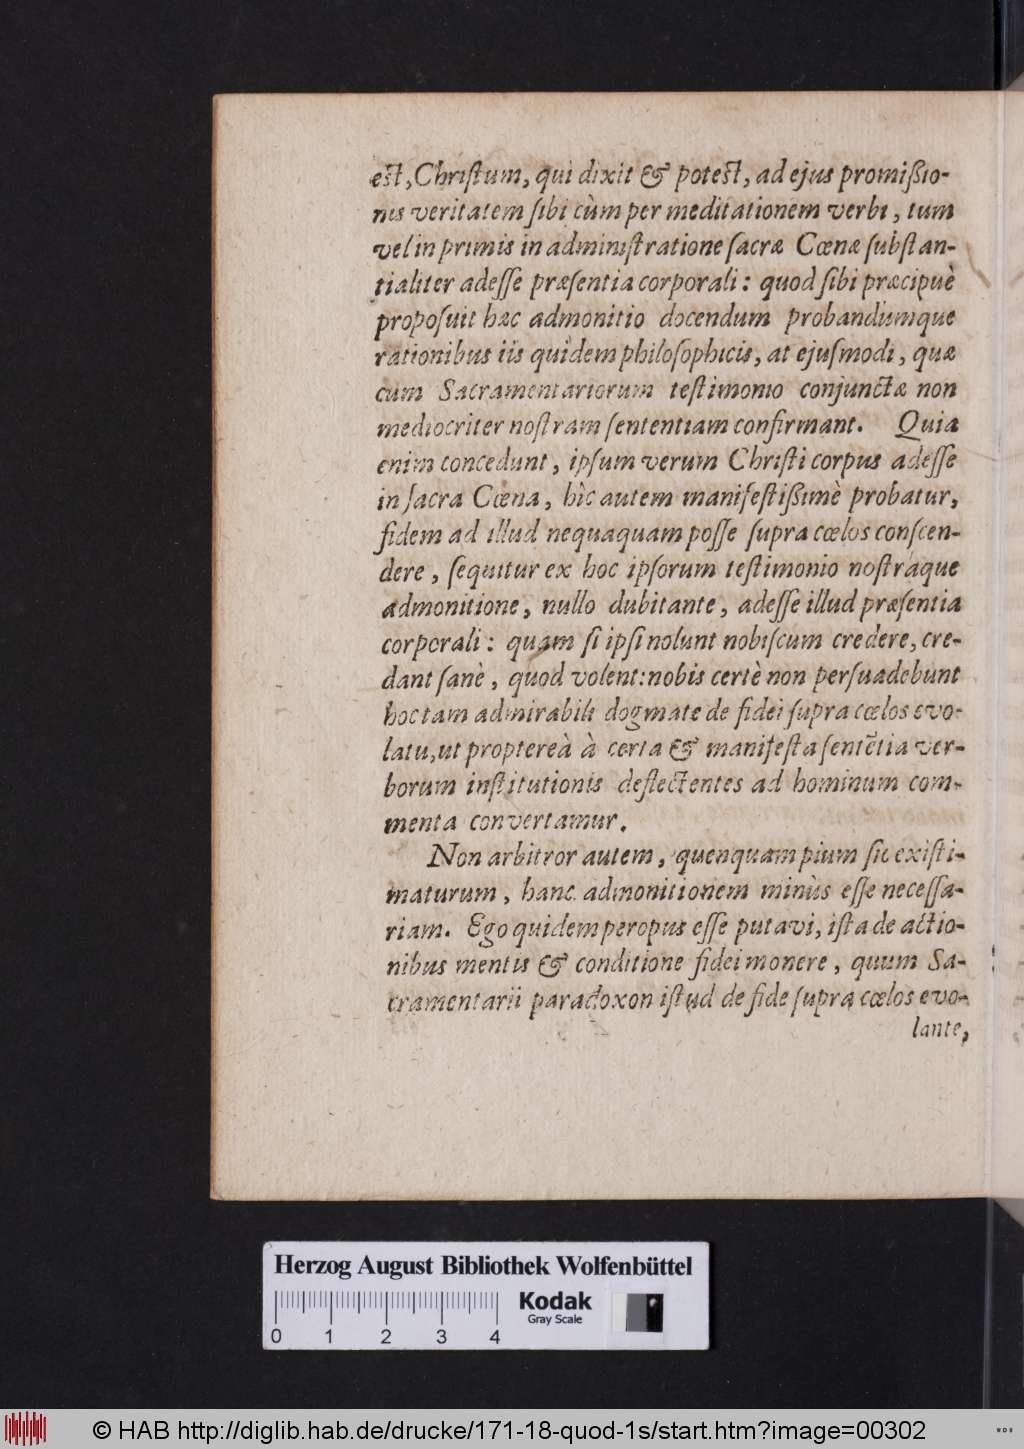 est, Christum, qui dixit & potest, ad ejus promißio-
nis veritatem sibi cùm per meditationem verbi, tum
vel in primis in administratione sacræ Cœnæ substan-
tialiter adesse præsentia corporali: quod sibi præcipuè
proposuit hæc admonitio docendum probandumque
rationibus iis quidem philosophicis, at ejusmodi, quæ
cum Sacramentariorum testimonio conjunctæ non
mediocriter nostram sententiam confirmant. Quia
enim concedunt, ipsum verum Christi corpus adesse
in sacra Cœna, hîc autem manifestißimè probatur,
fidem ad illud nequaquam posse supra cœlos conscen-
dere, sequitur ex hoc ipsorum testimonio nostraque
admonitione, nullo dubitante, adesse illud præsentia
corporali: quam si ipsi nolunt nobiscum credere, cre-
dant sanè, quod volent: nobis certè non persuadebunt
hoc tam admirabili dogmate de fidei supra cœlos evo-
latu, ut proptereà à certa & manifesta sentẽtia ver-
borum institutionis deflectentes ad hominum com-
menta convertamur.
Non arbitror autem, quenquam pium sic existi-
maturum, hanc admonitionem minùs esse necessa-
riam. Ego quidem peropus esse putavi, ista de actio-
nibus mentis & conditione fidei monere, quum Sa-
cramentarii paradoxon istud de fide supra cœlos evo-
lante,
Herzog August Bibliothek Wolfenbüttel
Kodak
Gray Scale
0 1 2 3 4
© HAB http://diglib.hab.de/drucke/171-18-quod-1s/start.htm?image=00302